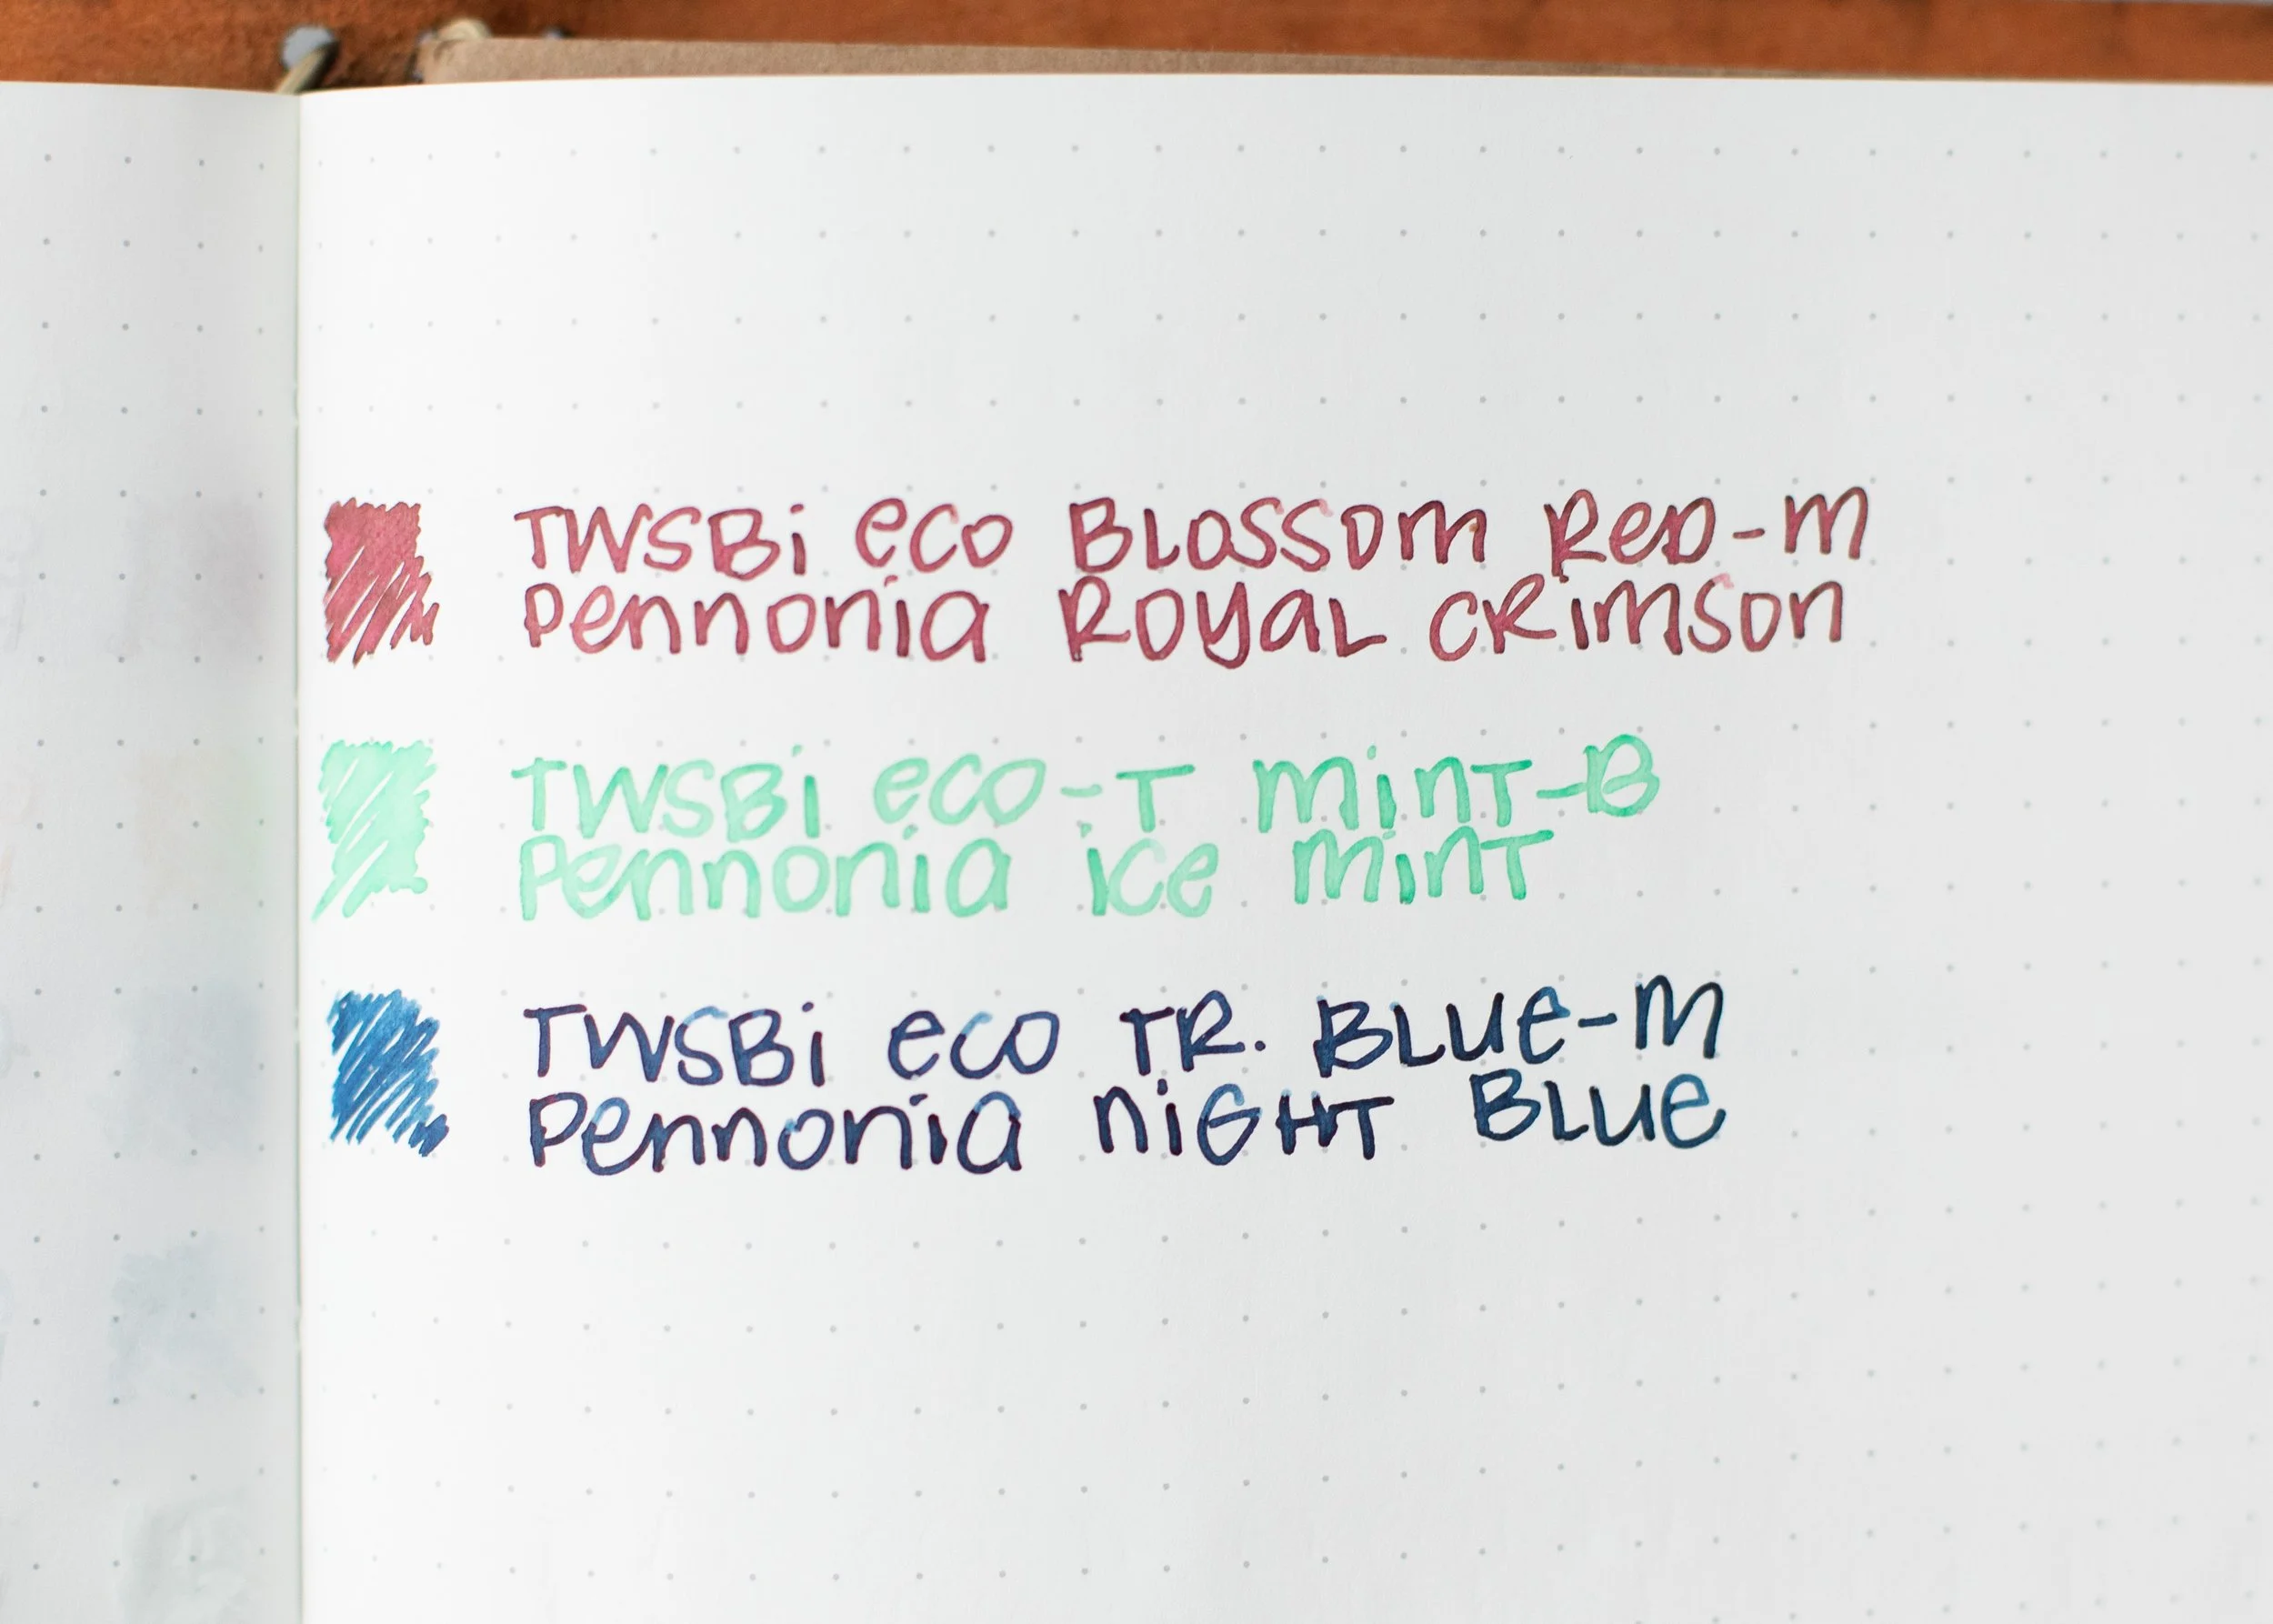 TWSBi eco Blossom Red-M
Pennonia Royal Crimson
TWSBi eco-T Mint-B
Pennonia ice mint
TWSBi eco TR. Blue-M
Pennonia Night Blue